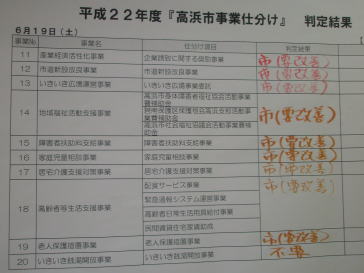 平成22年度『高浜市事業仕分け』 判定結果
6月19日（土）
事業№ 事業名 仕分け項目 判定結果
11 産業経済活性化事業 企業誘致に関する奨励事業 市(要改善)
12 市道新設改良事業 市道新設改良事業 市(要改善)
13 いきいき広場運営事業 いきいき広場事業委託 市(要改善)
14 地域福祉活動支援事業 高浜市身体障害者福祉協会活動事業費補助金 市(要改善)
高浜市社会福祉協議会活動事業費補助金
15 障害者扶助料支給事業 障害者扶助料支給事業 市(要改善)
16 家庭児童相談事業 家庭児童相談事業 市(要改善)
17 居宅介護支援対策事業 居宅介護支援対策事業 市(要改善)
18 高齢者等生活支援事業 配食サービス事業 市(要改善)
緊急通報システム運営事業
高齢者日常生活用具給付事業
民間賃貸住宅家賃助成
19 老人保護措置事業 老人保護措置事業 市(要改善)
20 いきいき銭湯開放事業 いきいき銭湯開放事業 不要